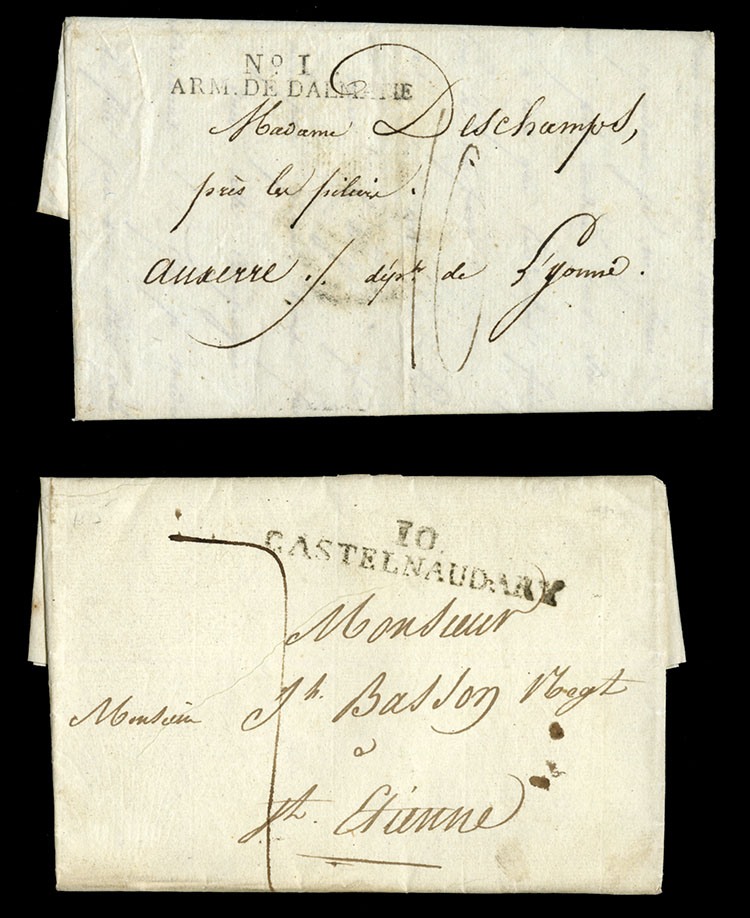 No 1
ARM. DE DALMATIE
Madame Deschamps,
près les piliers.
16
auxerre ./. dépt. de L'yonne.
10
CASTELNAUDARY
Monsieur
Monsieur Jh. Basson Negt
7
a
St. Etienne